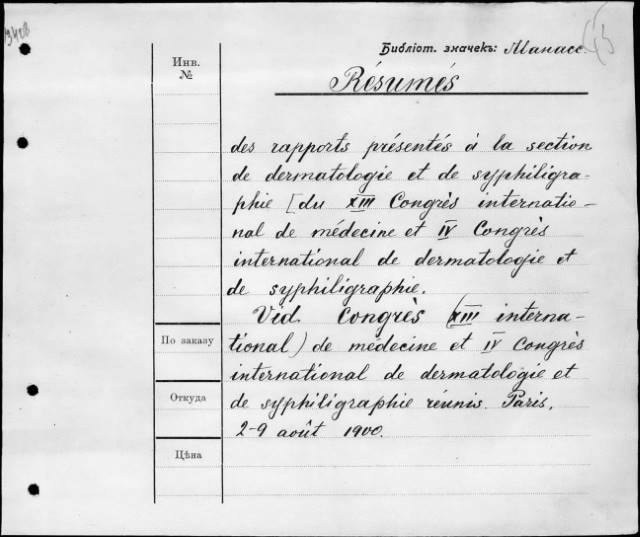 Библіот. значекъ: Манасс.
Инв.
№
Résumés
des rapports présentés à la section
de dermatologie et de syphiligra-
phie [du XIII Congrès internatio-
nal de médecine et IV Congrès
international de dermatologie et
de syphiligraphie.
Vid. Congrès (XIII interna-
tional) de médecine et IV Congrès
international de dermatologie et
de syphiligraphie réunis. Paris,
2-9 août 1900.
По заказу
Откуда
Цѣна